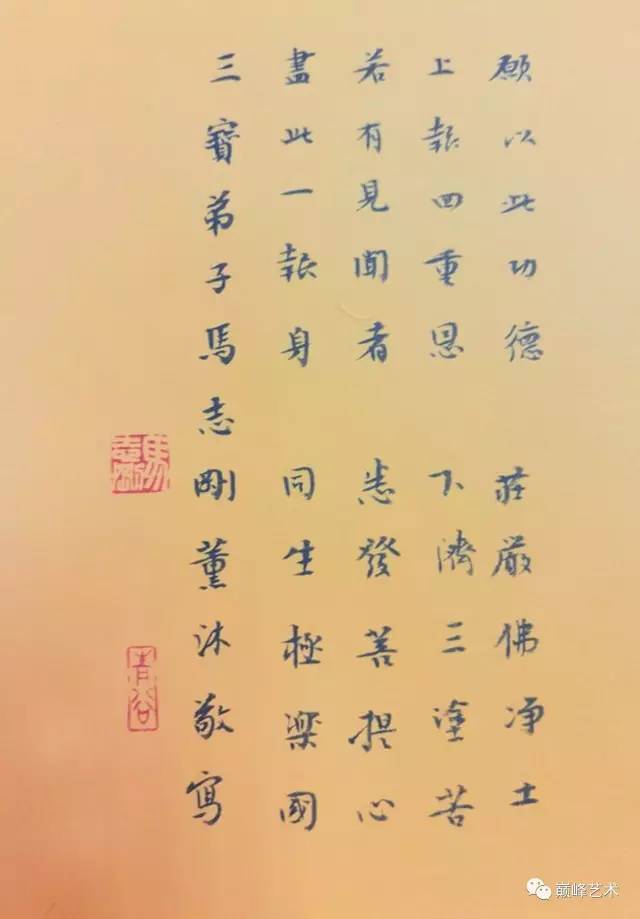 願以此功德 莊嚴佛净土
上報四重恩 下濟三塗苦
若有見聞者 悉發菩提心
盡此一報身 同生極楽國
三寶弟子馬志剛薰沐敬寫
馬志剛
青谷
巅峰艺术